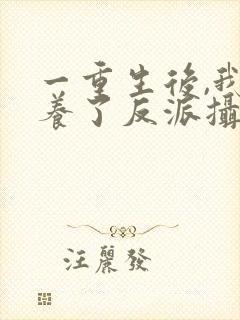 一重生後,我
養了反派攝
汪麗發